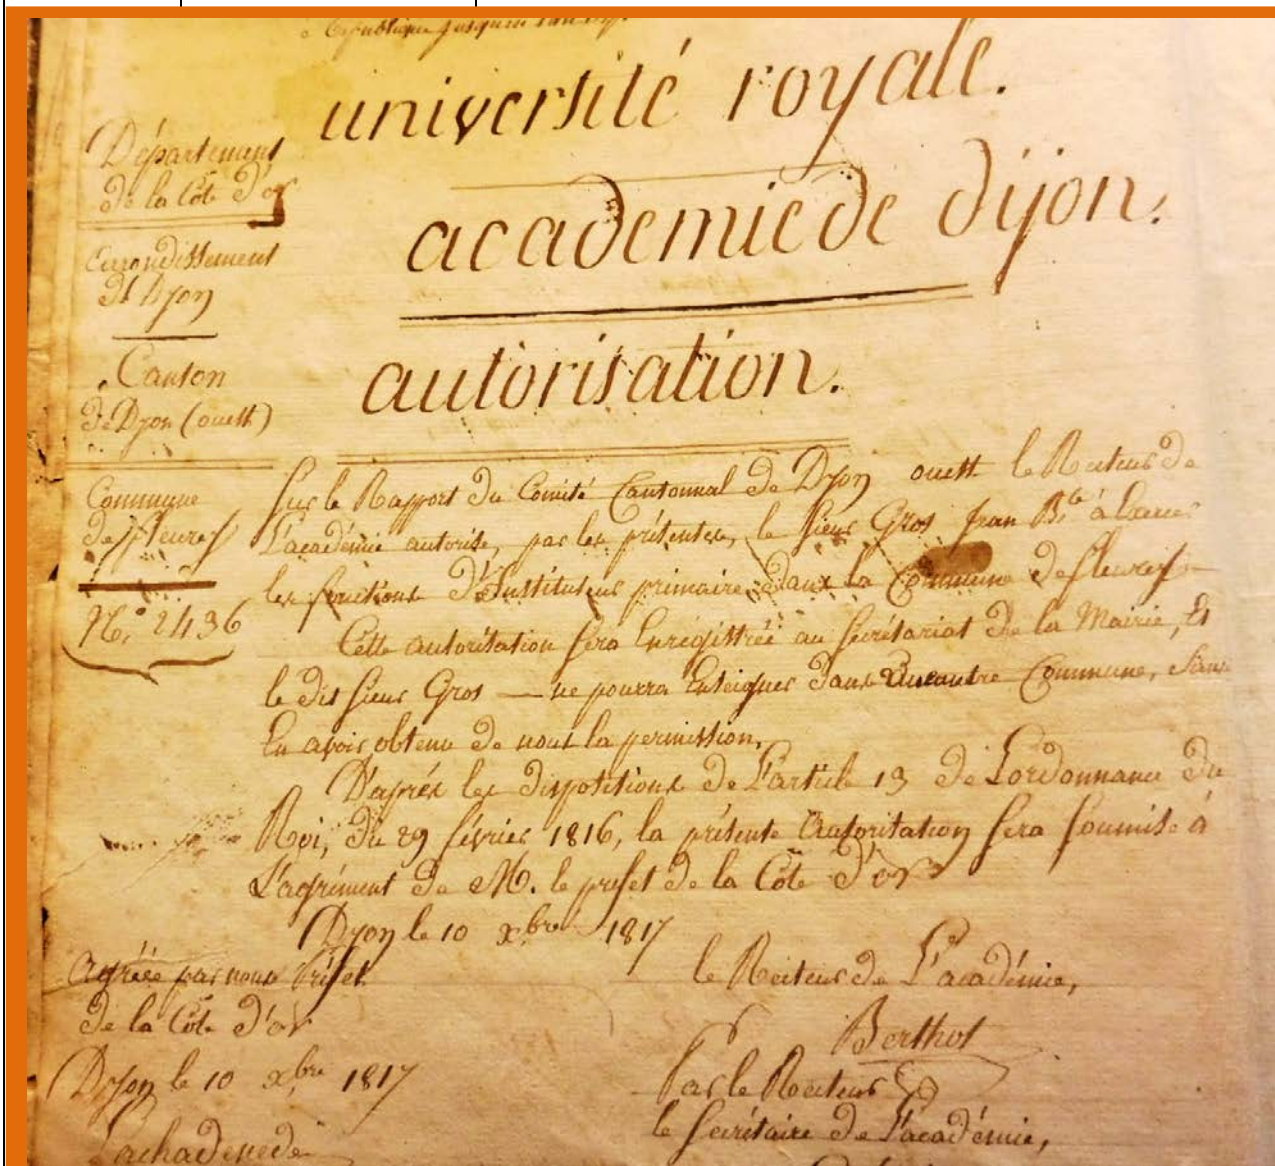 République jusqu'en l'an
université royale.
academie de dijon.
autorisation.
Département
de la Côte d'or
arrondissement
de Dijon
Canton
de Dijon (ouest)
Commune
de fleurey
N.° 2436
Sur le Rapport du Comité Cantonnal de Dijon ouest le Recteur de
L'académie autorise, par les présentes, le sieur Gros jean B.te à Exercer
les fonctions D'Instituteur primaire dans la Commune de fleurey
Cette autorisation sera Enregistrée au secrétariat de la Mairie, Et
le dit sieur Gros — ne pourra Enseigner dans Aucune autre Commune, sans
En avoir obtenu de nous la permission.
D'après les dispositions de L'article 13 de L'ordonnance du
Roi, du 29 février 1816, la présente Autorisation sera soumise à
L'agrément de M. le préfet de la Côte d'or
Dijon le 10 xbre 1817
agréée par nous Préfet
de la Côte d'or
Dijon le 10 xbre 1817
Lachadenede
le Recteur de L'académie,
Berthot
Par le Recteur
le secrétaire de L'académie,